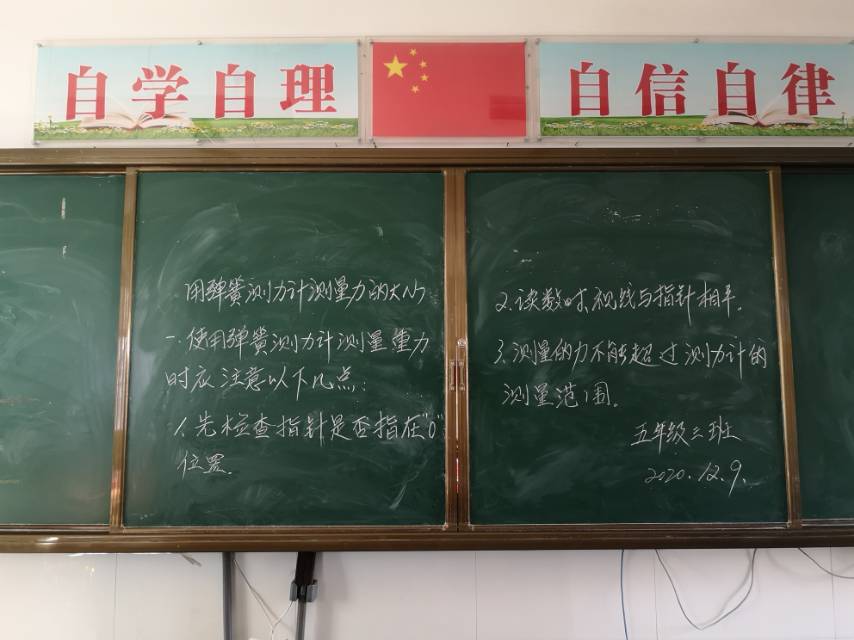 自学自理
自信自律
用弹簧测力计测量力的大小
一、使用弹簧测力计测量重力
时应注意以下几点：
1、先检查指针是否指在"0"
位置。
2、读数时，视线与指针相平。
3、测量的力不能超过测力计的
测量范围。
五年级三班
2020.12.9.